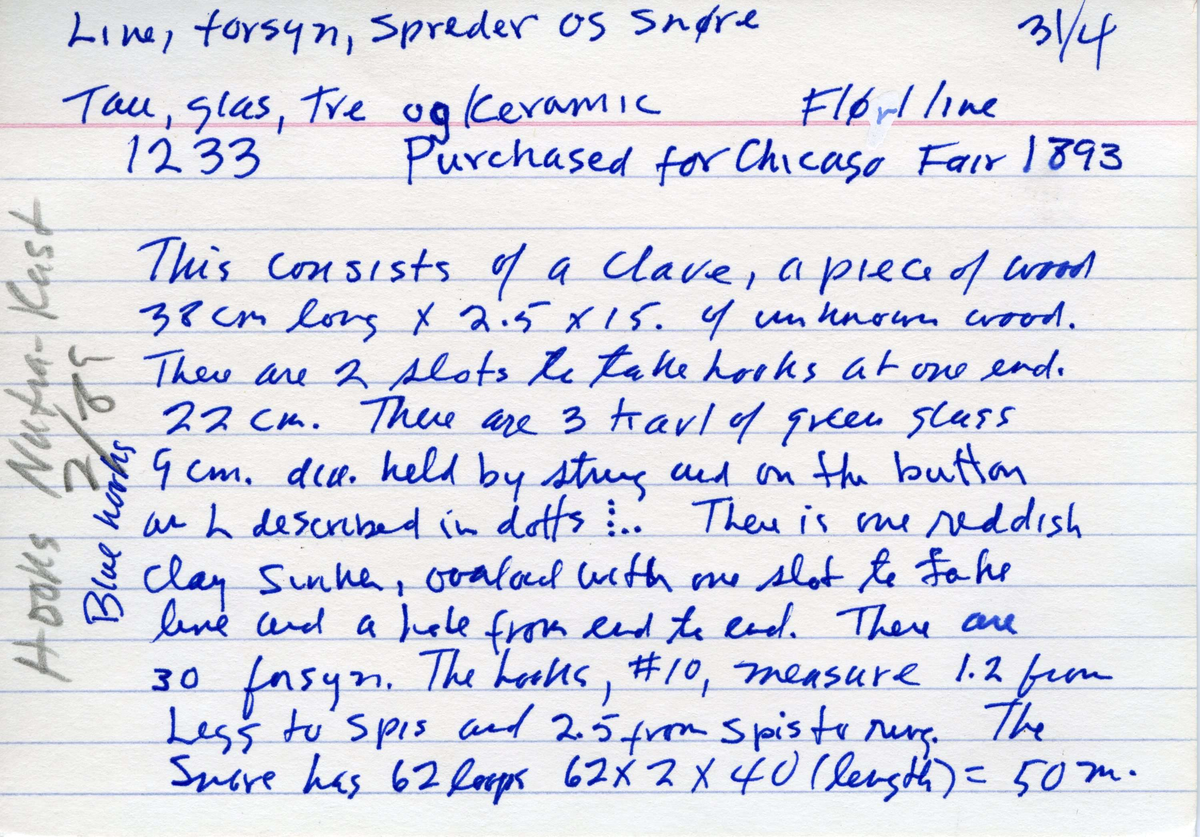 Line, forsyn, Spreder os Snøre
31/4
Tau, glas, Tre og Keramic Flørl line
1233 Purchased for Chicago Fair 1893
This consists of a Clave, a piece of wood
38 cm long x 2.5 x 15. of unknown wood.
There are 2 slots to take hooks at one end.
22 cm. There are 3 kavl of green glass
9 cm. dia. held by string and on the button
an L described in dotts There is one reddish
Clay Sinker, with one slot to take
line and a hole from end to end. There are
30 forsyn. The hooks, #10, measure 1.2 from
Legg to Spis and 2.5 from Spis to ring. The
Snøre has 62 loops 62 x 2 x 40 (length) = 50 m.
Hooks Nutra-Kast
2/89
Blue hooks